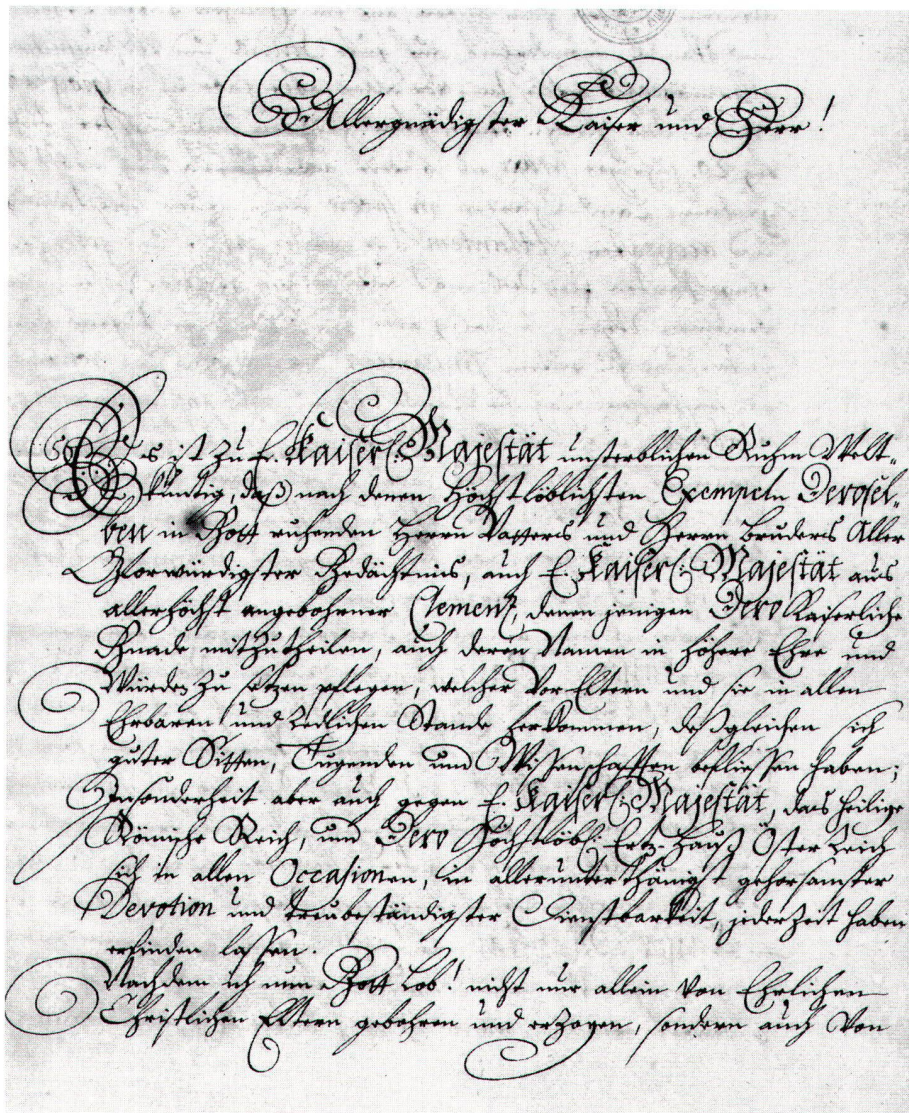 Allergnädigster Kaiser und Herr!
Es ist zu E. Kaiserl: Majestät unsterblichen Ruhm Welt-
kündig, daß nach denen Höchstlöblichsten Exempeln Deroselben
ben in Gott ruhenden Herrn Vatters und Herrn Bruders Aller
Glorwürdigster Gedächtnus, auch E. Kaiserl: Majestät aus
allerhöchst angebohrner Clemenz, denen jenigen Dero Kaiserliche
Gnade mitzutheilen, auch deren Namen in höhere Ehre und
Würden zu setzen pflegen, welcher Vor Eltern und sie in allen
Ehrbaren und Redlichen Stande herkommen, deßgleichen sich
guter Sitten, Tugenden und Wissenschafften beflissen haben;
Insonderheit aber auch gegen E. Kaiserl: Majestät, das heilige
Römische Reich, und Dero Höchstlöbl: Ertz-Hauß Österreich
sich in allen Occasionen, in allerunterthänigst gehorsamster
Devotion und treubeständigster Dienstbarkeit, jederzeit haben
erfinden lassen.
Nachdem ich nun Gott Lob! nicht nur allein Von Ehrlichen
Christlichen Eltern gebohren und erzogen, sondern auch Von